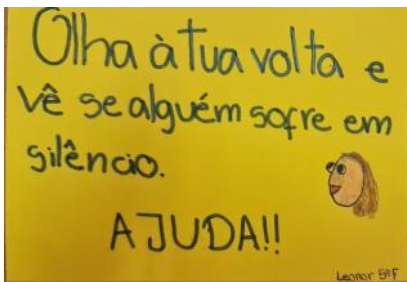 Olha à tua volta e
vê se alguém sofre em
silêncio.
AJUDA!!
Leonor 5ºF